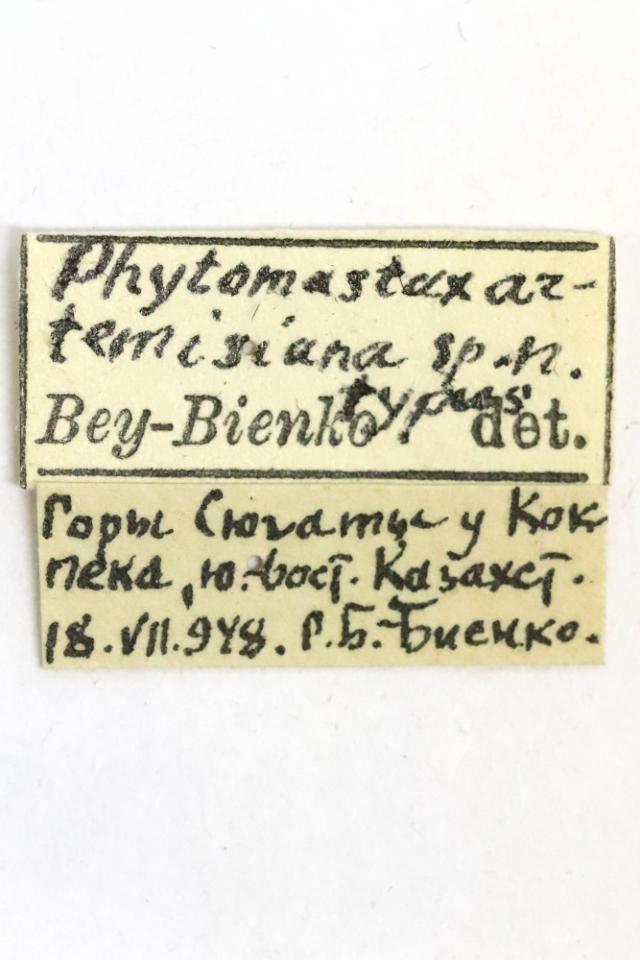 Phytomastax ar-
temisiana sp.n.
typus
Bey-Bienko det.
Горы Сюгаты у Кок
пека, ю.-вост. Казахст.
18.VII.948. Г.Б.-Биенко.